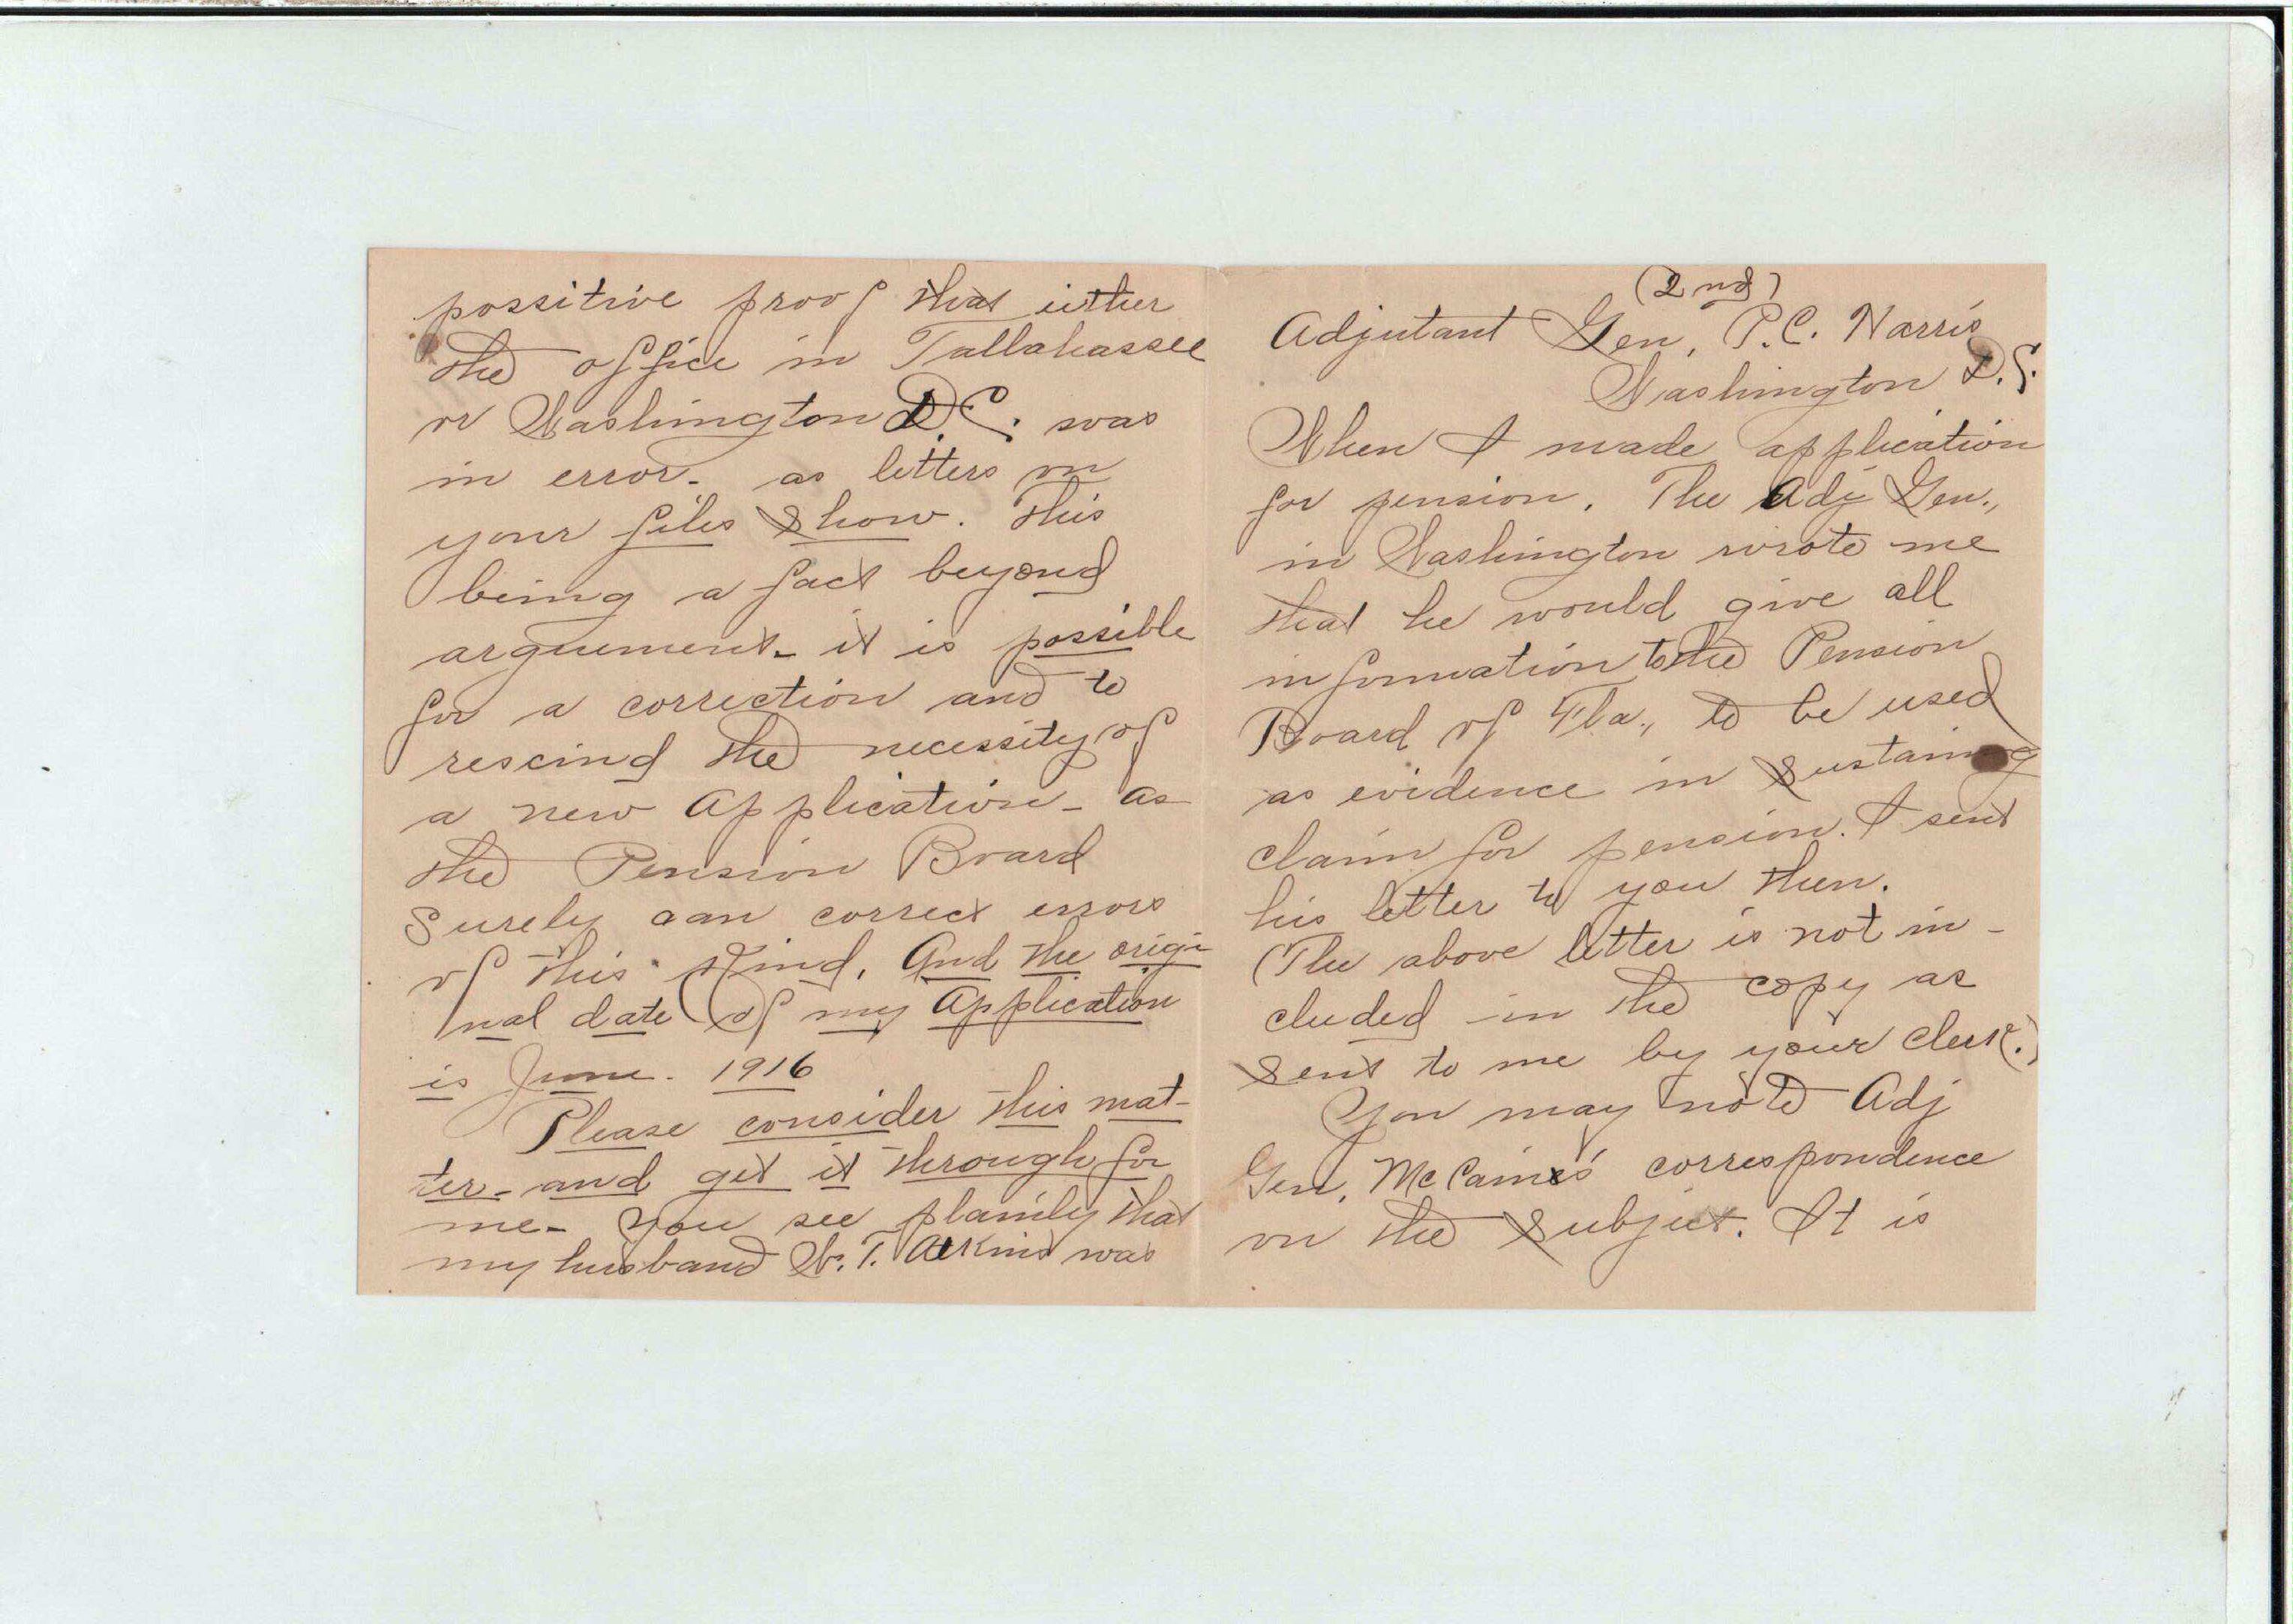 (2nd)
Adjutant Gen, P.C. Harris
Washington D.C.
When I made application
for pension. The Adj Gen.,
in Washington wrote me
that he would give all
information to the Pension
Board of Fla., to be used
as evidence in sustaining
claim for pension. I sent
his letter to you then.
(The above letter is not in-
cluded in the copy as
sent to me by your clerk.)
You may note Adj
Gen. McCaine's correspondence
on the subject. It is
possitive proof that either
the office in Tallahassee
or Washington D.C. was
in error- as letters on
your files show. This
being a fact beyond
arguement- it is possible
for a correction and to
rescind the necessity of
a new application- as
the Pension Board
surely can correct errors
of this kind. And the origi
nal date of my Application
is June. 1916
Please consider this mat-
ter- and get it through for
me- You see plainly that
my husband W. T. Atkins was